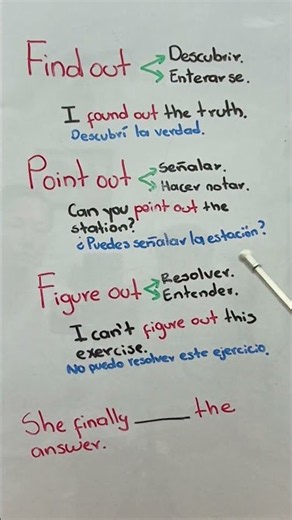 Find out < Descubrir.
Enterarse.
I found out the truth.
Descubrí la verdad.
Point out < Señalar.
Hacer notar.
Can you point out the
station?
¿Puedes señalar la estación?
Figure out < Resolver.
Entender.
I can't figure out this
exercise.
No puedo resolver este ejercicio.
She finally ____ the
answer.